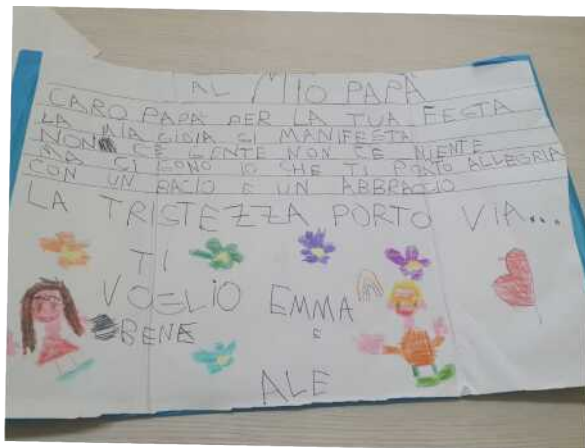 AL MIO PAPÀ
CARO PAPÀ PER LA TUA FESTA
LA MIA GIOIA SI MANIFESTA
NON CE GENTE NON CE NIENTE
MA CI SONO IO CHE TI PORTO ALLEGRIA
CON UN BACIO E UN ABBRACCIO
LA TRISTEZZA PORTO VIA...
TI
VOGLIO
BENE
EMMA
E
ALE